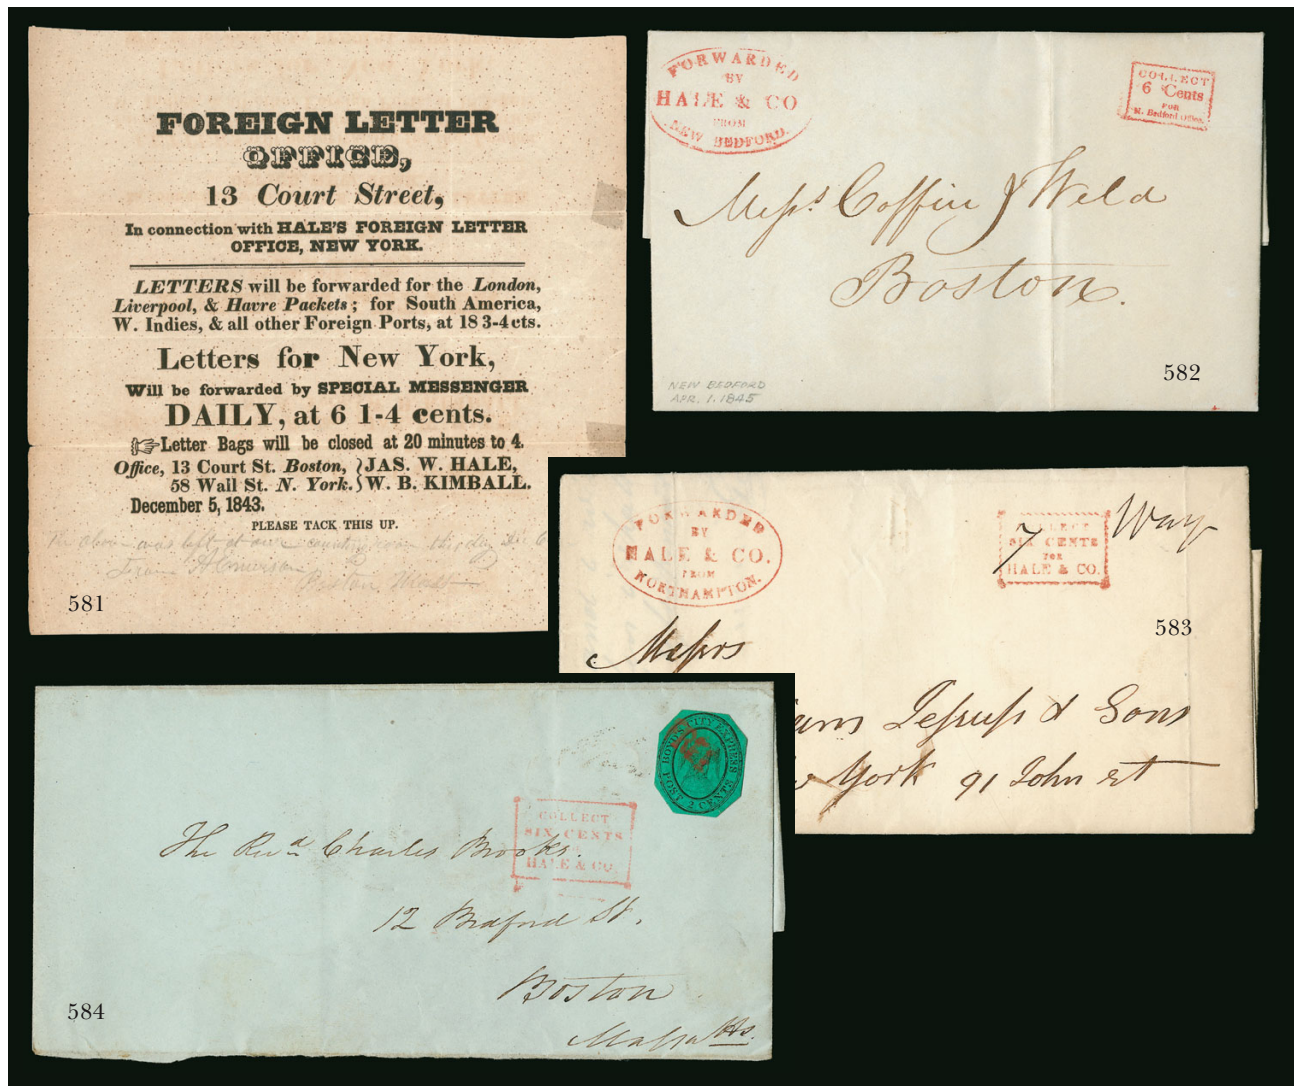 FOREIGN LETTER
OFFICE,
13 Court Street,
In connection with HALE'S FOREIGN LETTER
OFFICE, NEW YORK.
LETTERS will be forwarded for the London,
Liverpool, & Havre Packets; for South America,
W. Indies, & all other Foreign Ports, at 18 3-4 cts.
Letters for New York,
Will be forwarded by SPECIAL MESSENGER
DAILY, at 6 1-4 cents.
Letter Bags will be closed at 20 minutes to 4.
Office, 13 Court St. Boston, } JAS. W. HALE,
58 Wall St. N. York. } W. B. KIMBALL.
December 5, 1843.
PLEASE TACK THIS UP.
The above was left at our counting room this day
Boston Mass
581
FORWARDED
BY
HALE & CO
FROM
NEW BEDFORD.
COLLECT
6 Cents
FOR
N. Bedford Office.
Messrs Coffin & Weld
Boston.
NEW BEDFORD
APR. 1. 1845
582
FORWARDED
BY
HALE & CO.
FROM
NORTHAMPTON.
7
COLLECT
SIX CENTS
FOR
HALE & CO.
Way
583
Messrs
Jessup & Sons
York 91 John st
BOYD'S CITY EXPRESS
POST 2 CENTS
COLLECT
SIX CENTS
HALE & CO
The Revd. Charles Brooks.
12 Bedford St,
Boston
Massatts.
584